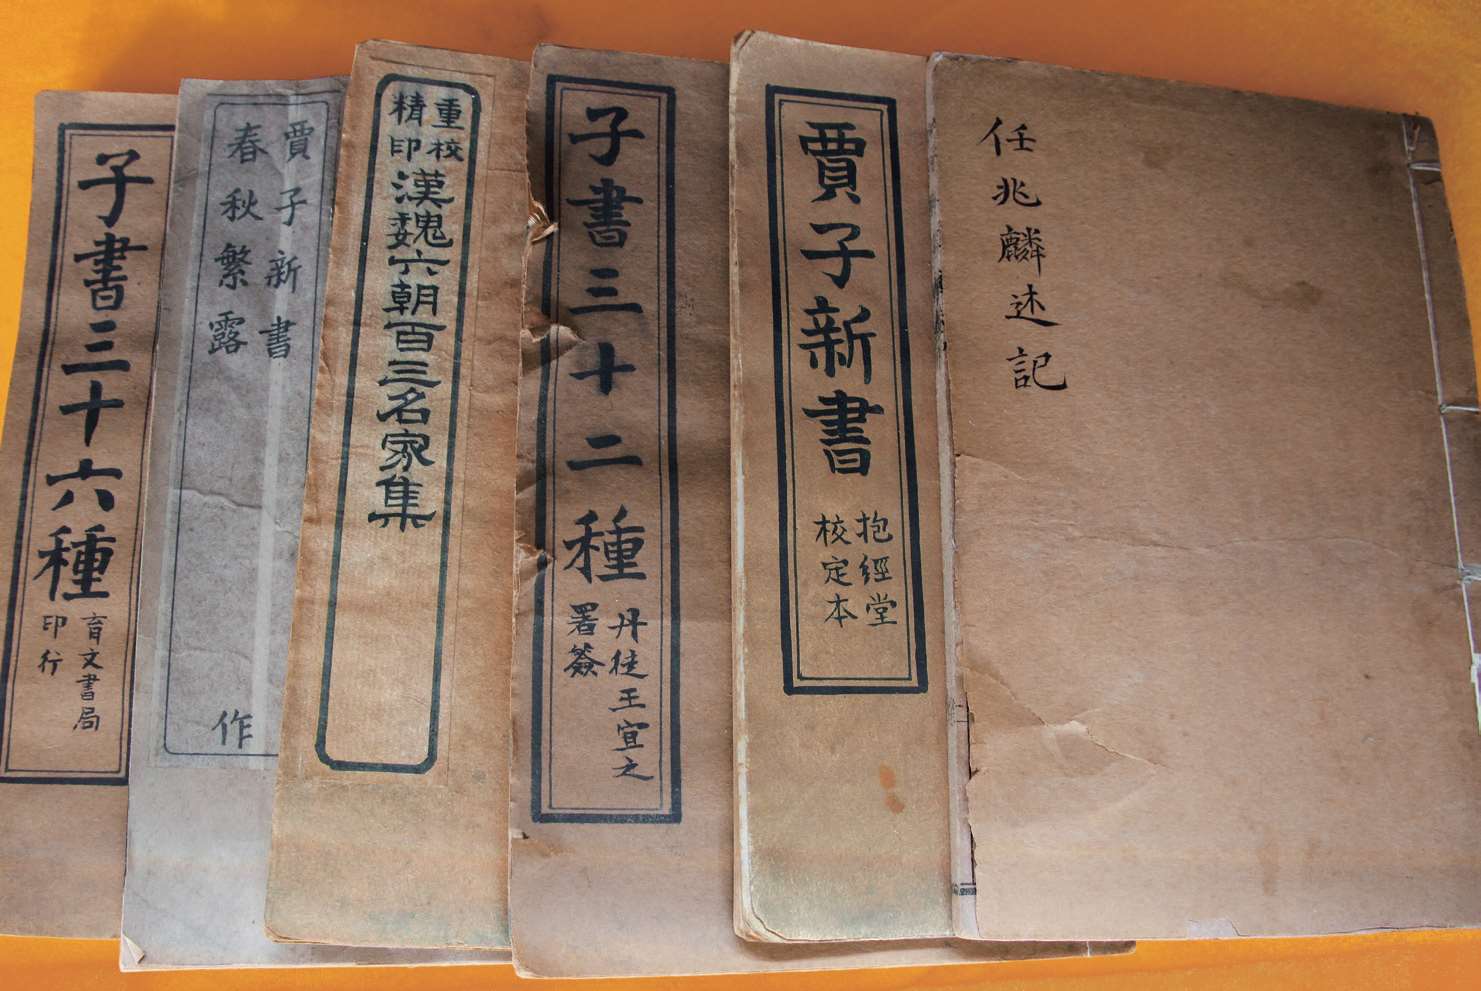 子書三十六種
育文書局
印行
賈子新書
春秋繁露
作
重校
精印
漢魏六朝百三名家集
子書三十二種
丹徒王宣之
署簽
賈子新書
抱經堂
校定本
任兆麟述記